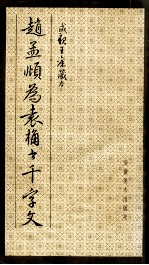 趙孟頫為袁桷書千字文
成親王舊藏本